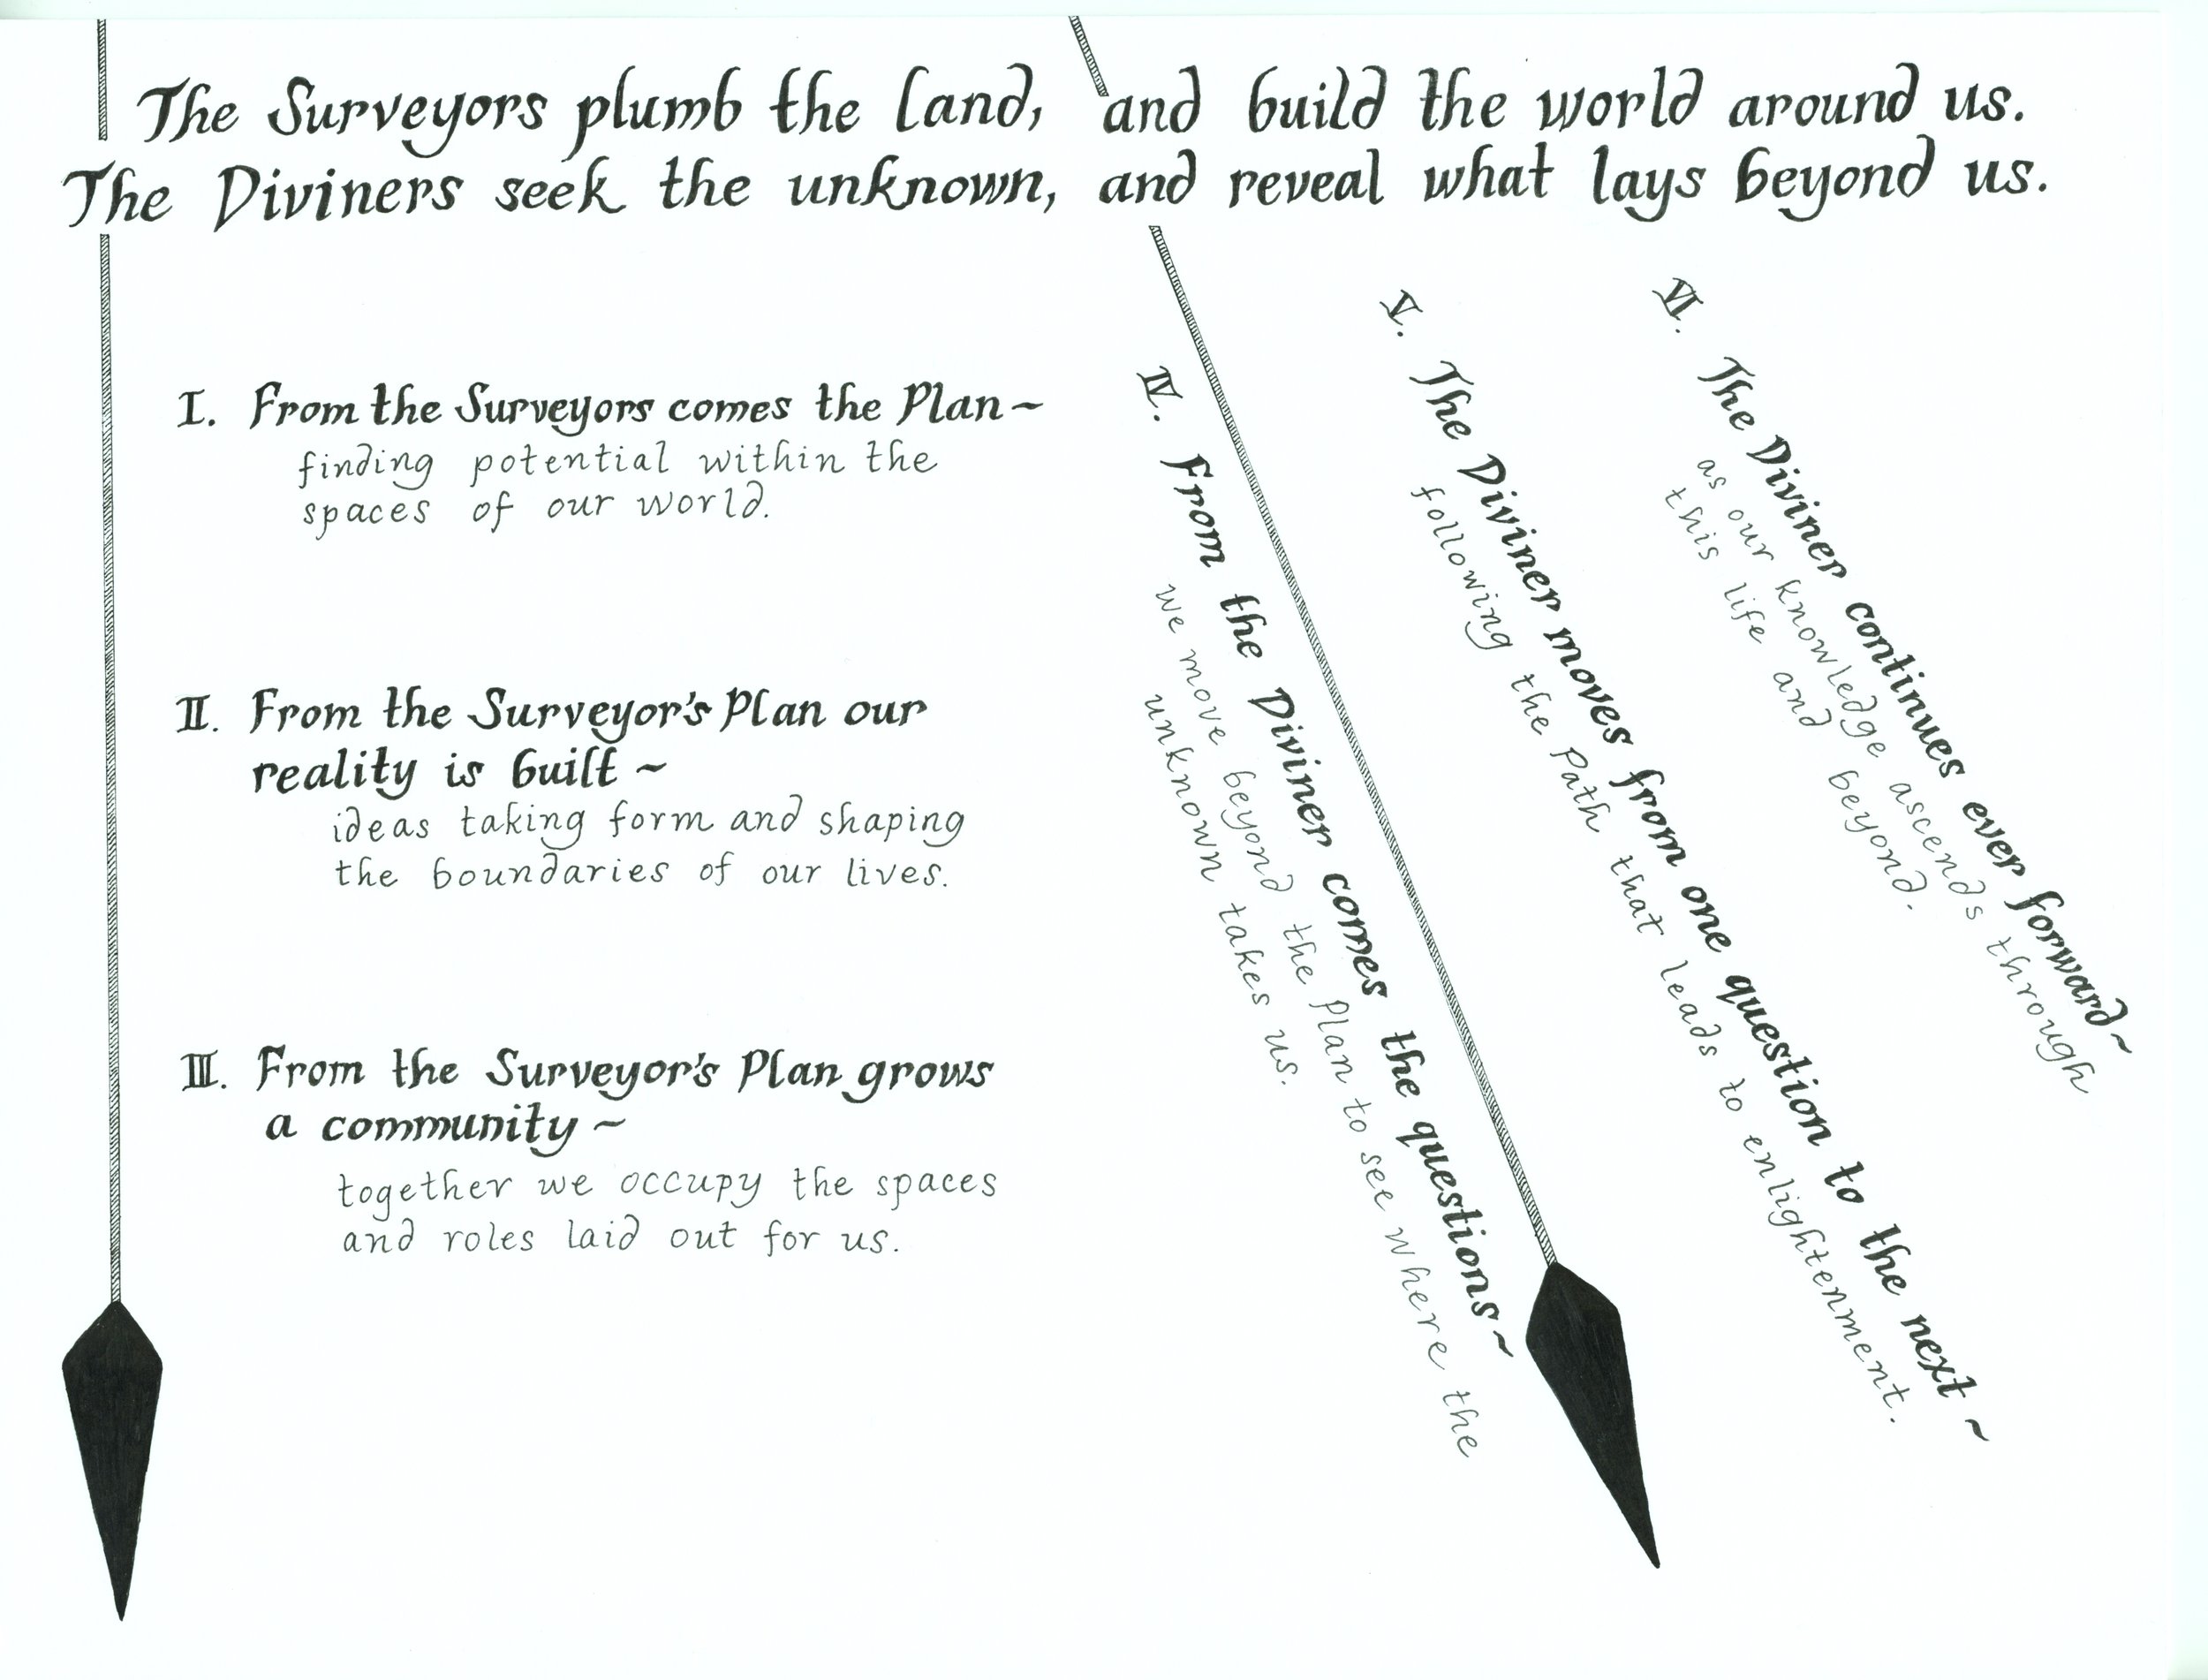 The Surveyors plumb the land, and build the world around us.
The Diviners seek the unknown, and reveal what lays beyond us.
I. From the Surveyors comes the Plan~
finding potential within the
spaces of our world.
II. From the Surveyor's Plan our
reality is built~
ideas taking form and shaping
the boundaries of our lives.
III. From the Surveyor's Plan grows
a community~
together we occupy the spaces
and roles laid out for us.
IV. From the Diviner comes the questions~
we move beyond the Plan to see where the
unknown takes us.
V. The Diviner moves from one question to the next~
following the Path that leads to enlightenment.
VI. The Diviner continues ever forward~
as our knowledge ascends through
this life and beyond.